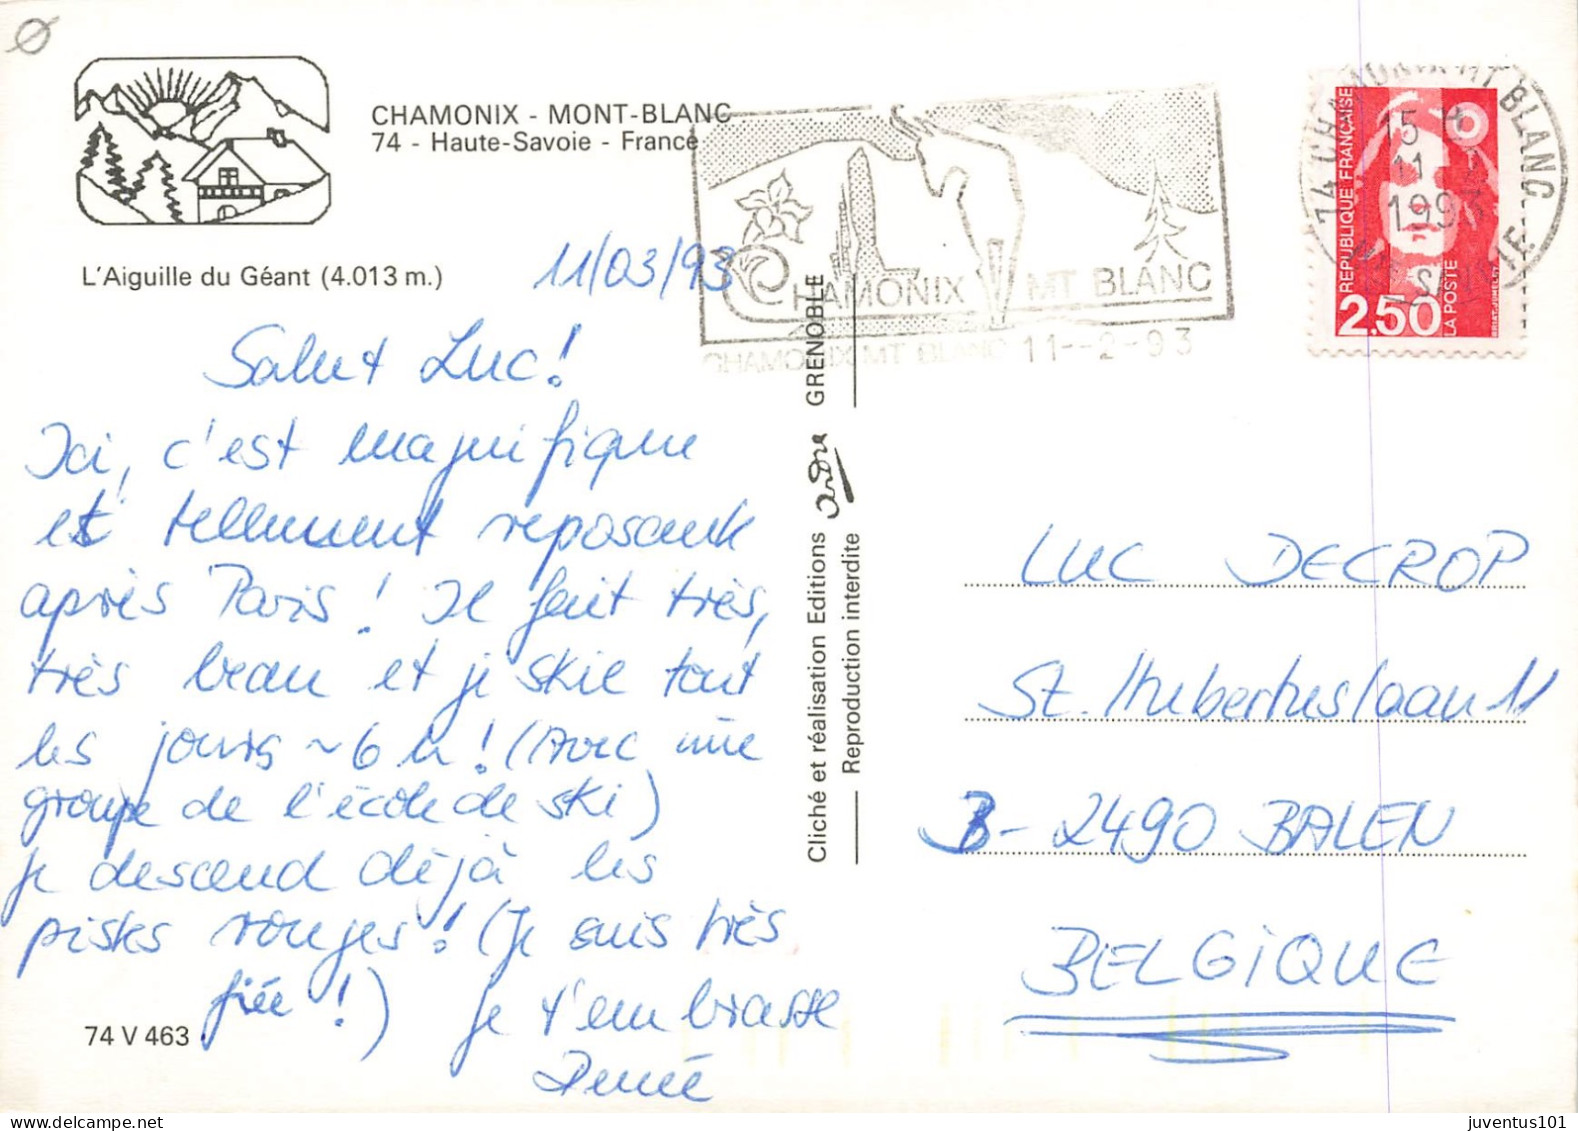 CHAMONIX - MONT-BLANC
74 - Haute-Savoie - France
L'Aiguille du Géant (4.013 m.)
11/03/93
Salut Luc!
Ici, c'est magnifique
et tellement reposant
après Paris! Il fait très,
très beau et je skie tout
les jours ~6 h! (Avec une
groupe de l'école de ski)
je descend déjà les
pistes rouges! (Je suis très
fiée!) Je t'embrasse
Renée
74 V 463
Cliché et réalisation Editions André GRENOBLE
Reproduction interdite
CHAMONIX MT BLANC
CHAMONIX MT BLANC 11--2-93
74 CHAMONIX MT BLANC
15 H
11 - 2
1993
HTE SAVOIE
REPUBLIQUE FRANÇAISE
2,50
LA POSTE
LUC DECROP
St. Hubertuslaan 11
B-2490 BALEN
BELGIQUE
juventus101